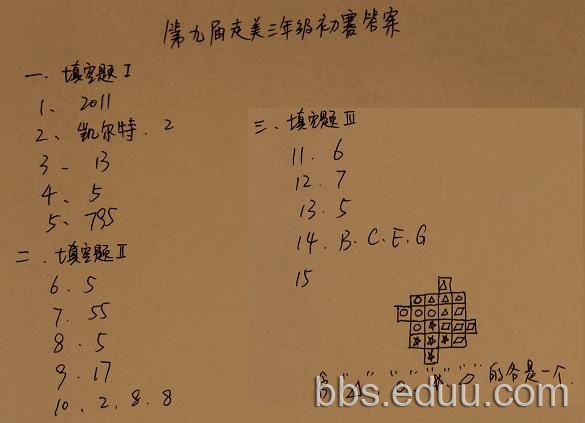 第九届走美三年级初赛答案
一、填空题 I
1、 2011
2、 凯尔特、2
3、 13
4、 5
5、 795
二、填空题 II
6、5
7、55
8、5
9、17
10、2、8、8
三、填空题 III
11、6
12、7
13、5
14、B、C、E、G
15
的各是一个
bbs.eduu.com